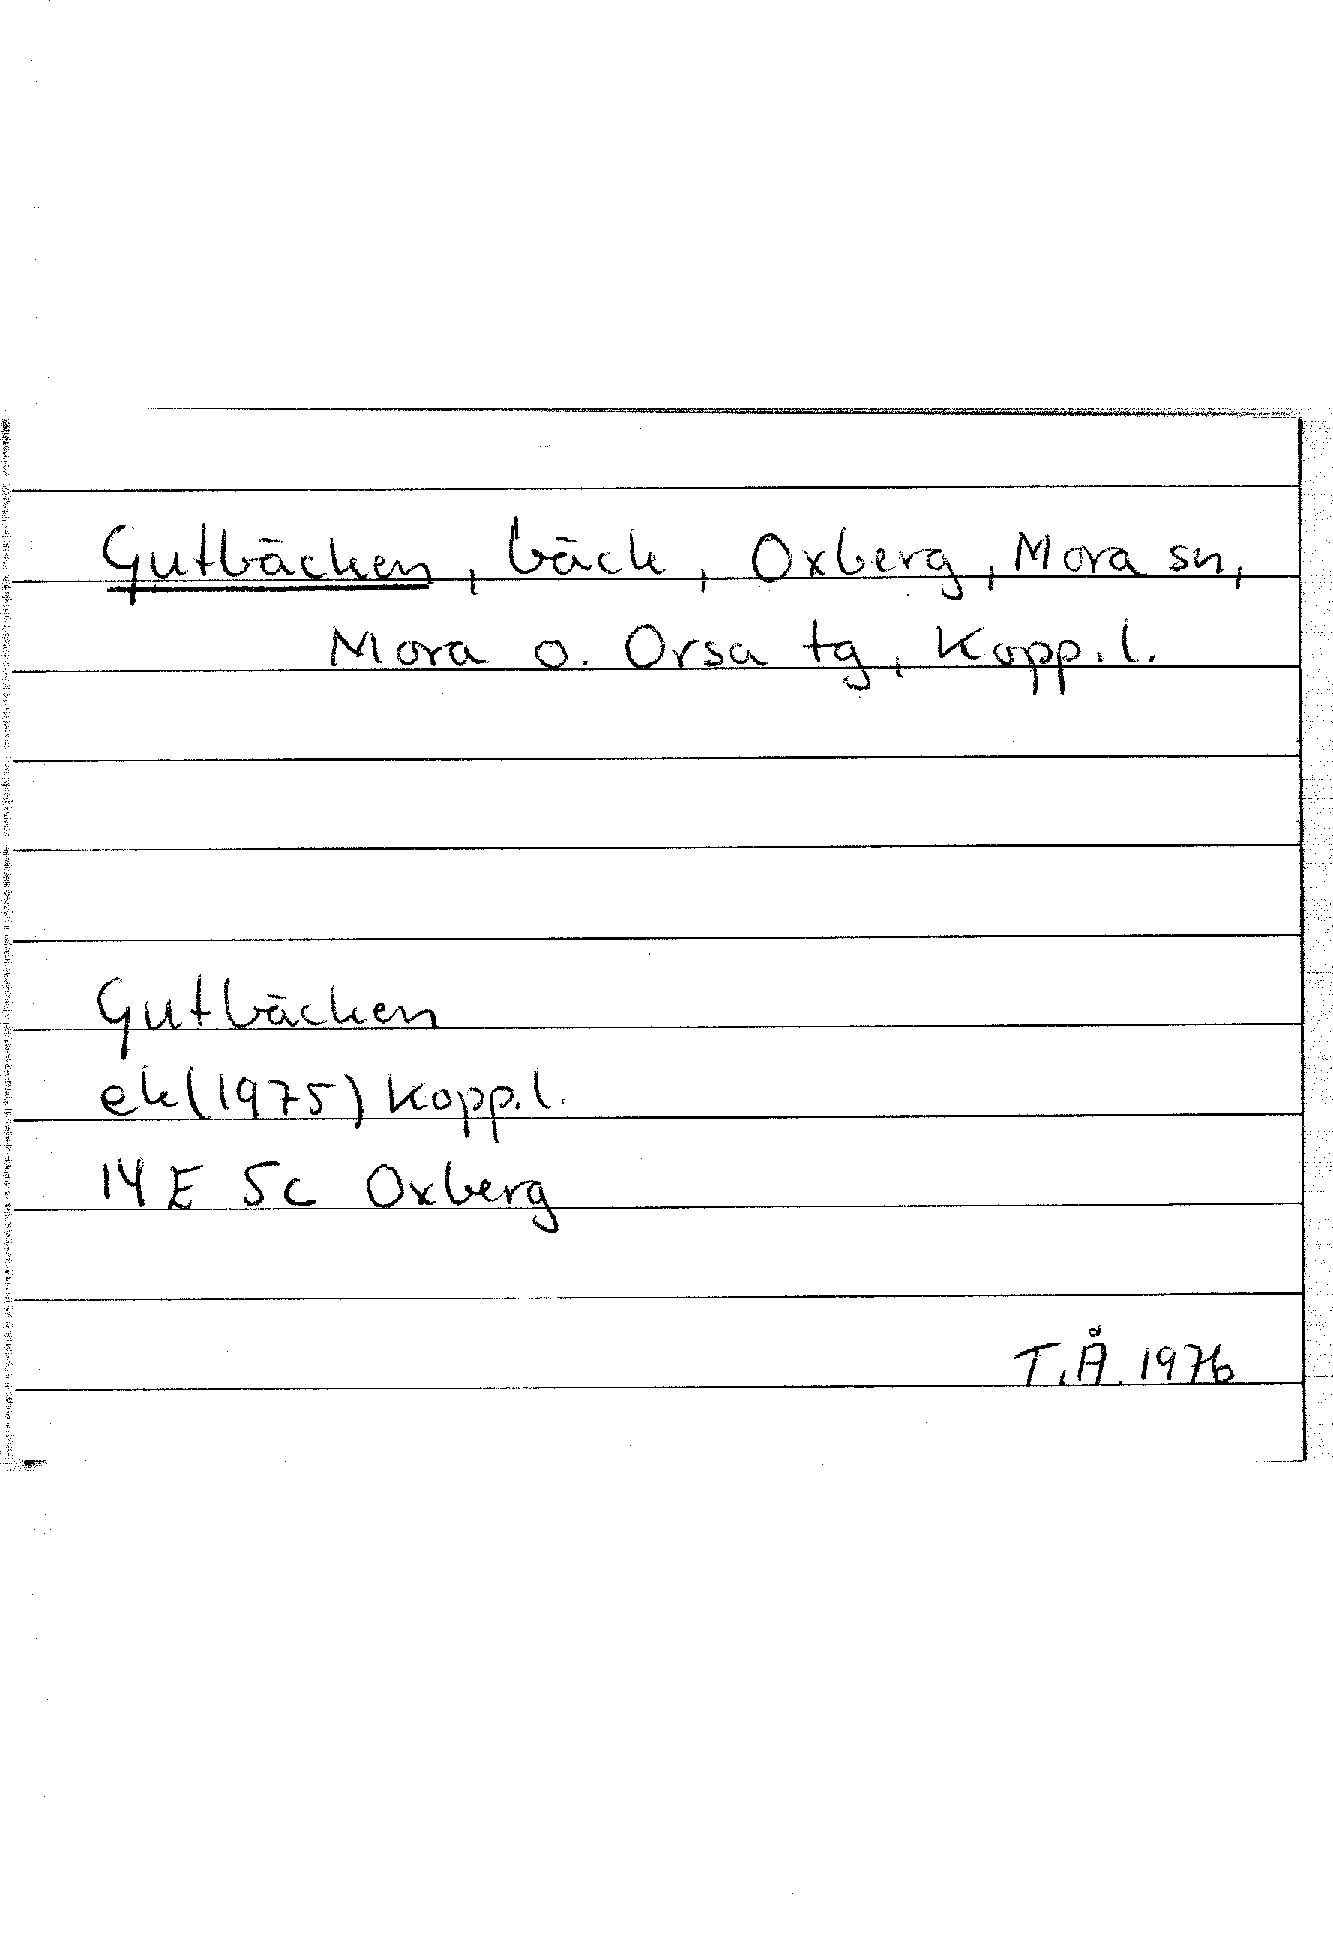 Gutbäcken, bäck, Oxberg, Mora sn,
Mora o. Orsa tg, Kopp. l.
Gutbäcken
ek (1975) Kopp. l.
14 E 5c Oxberg
T.Å. 1976